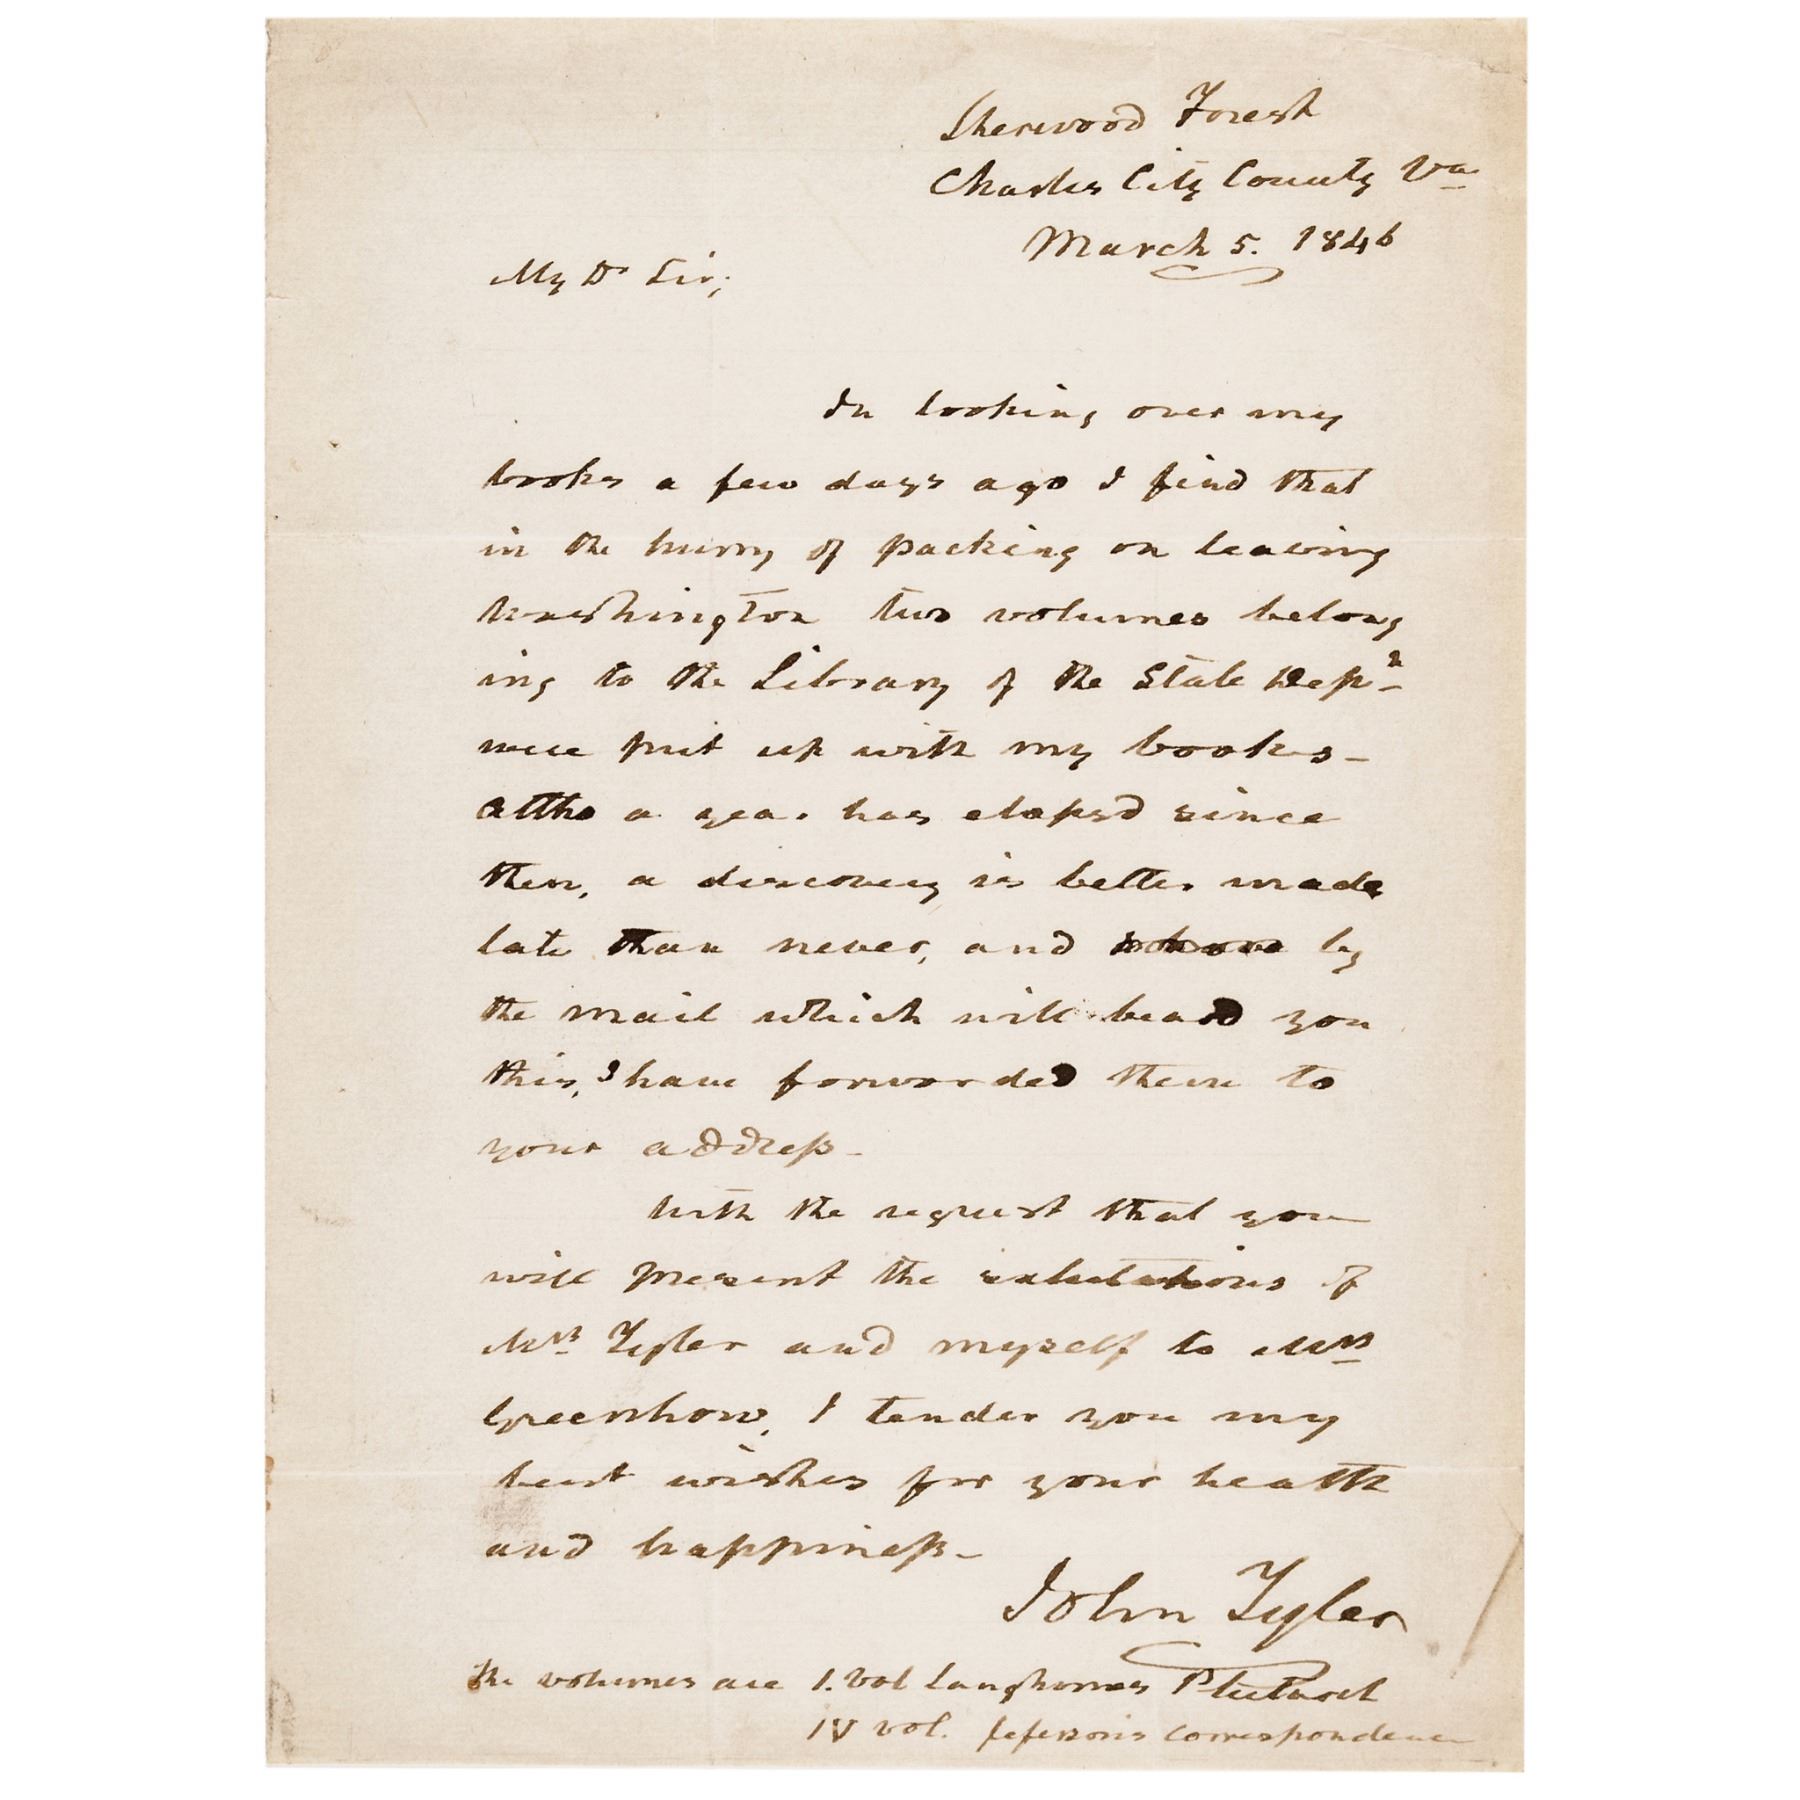 Sherwood Forest
Charles City County Va
March 5. 1846
My Dr Sir;
In looking over my
books a few days ago I find that
in the hurry of packing on leaving
Washington two volumes belong
ing to the Library of the State Dept
were put up with my books –
altho a year has elapsd since
then, a discovery is better made
late than never, and by
the mail which will bear you
this, I have forwarded them to
your address –
With the request that you
will present the salutations of
Mrs Tyler and myself to Mrs
Greenhow, I tender you my
best wishes for your health
and happiness –
John Tyler
The volumes are 1. vol Langhornes Plutarch
IV vol. Jefersons Correspondence